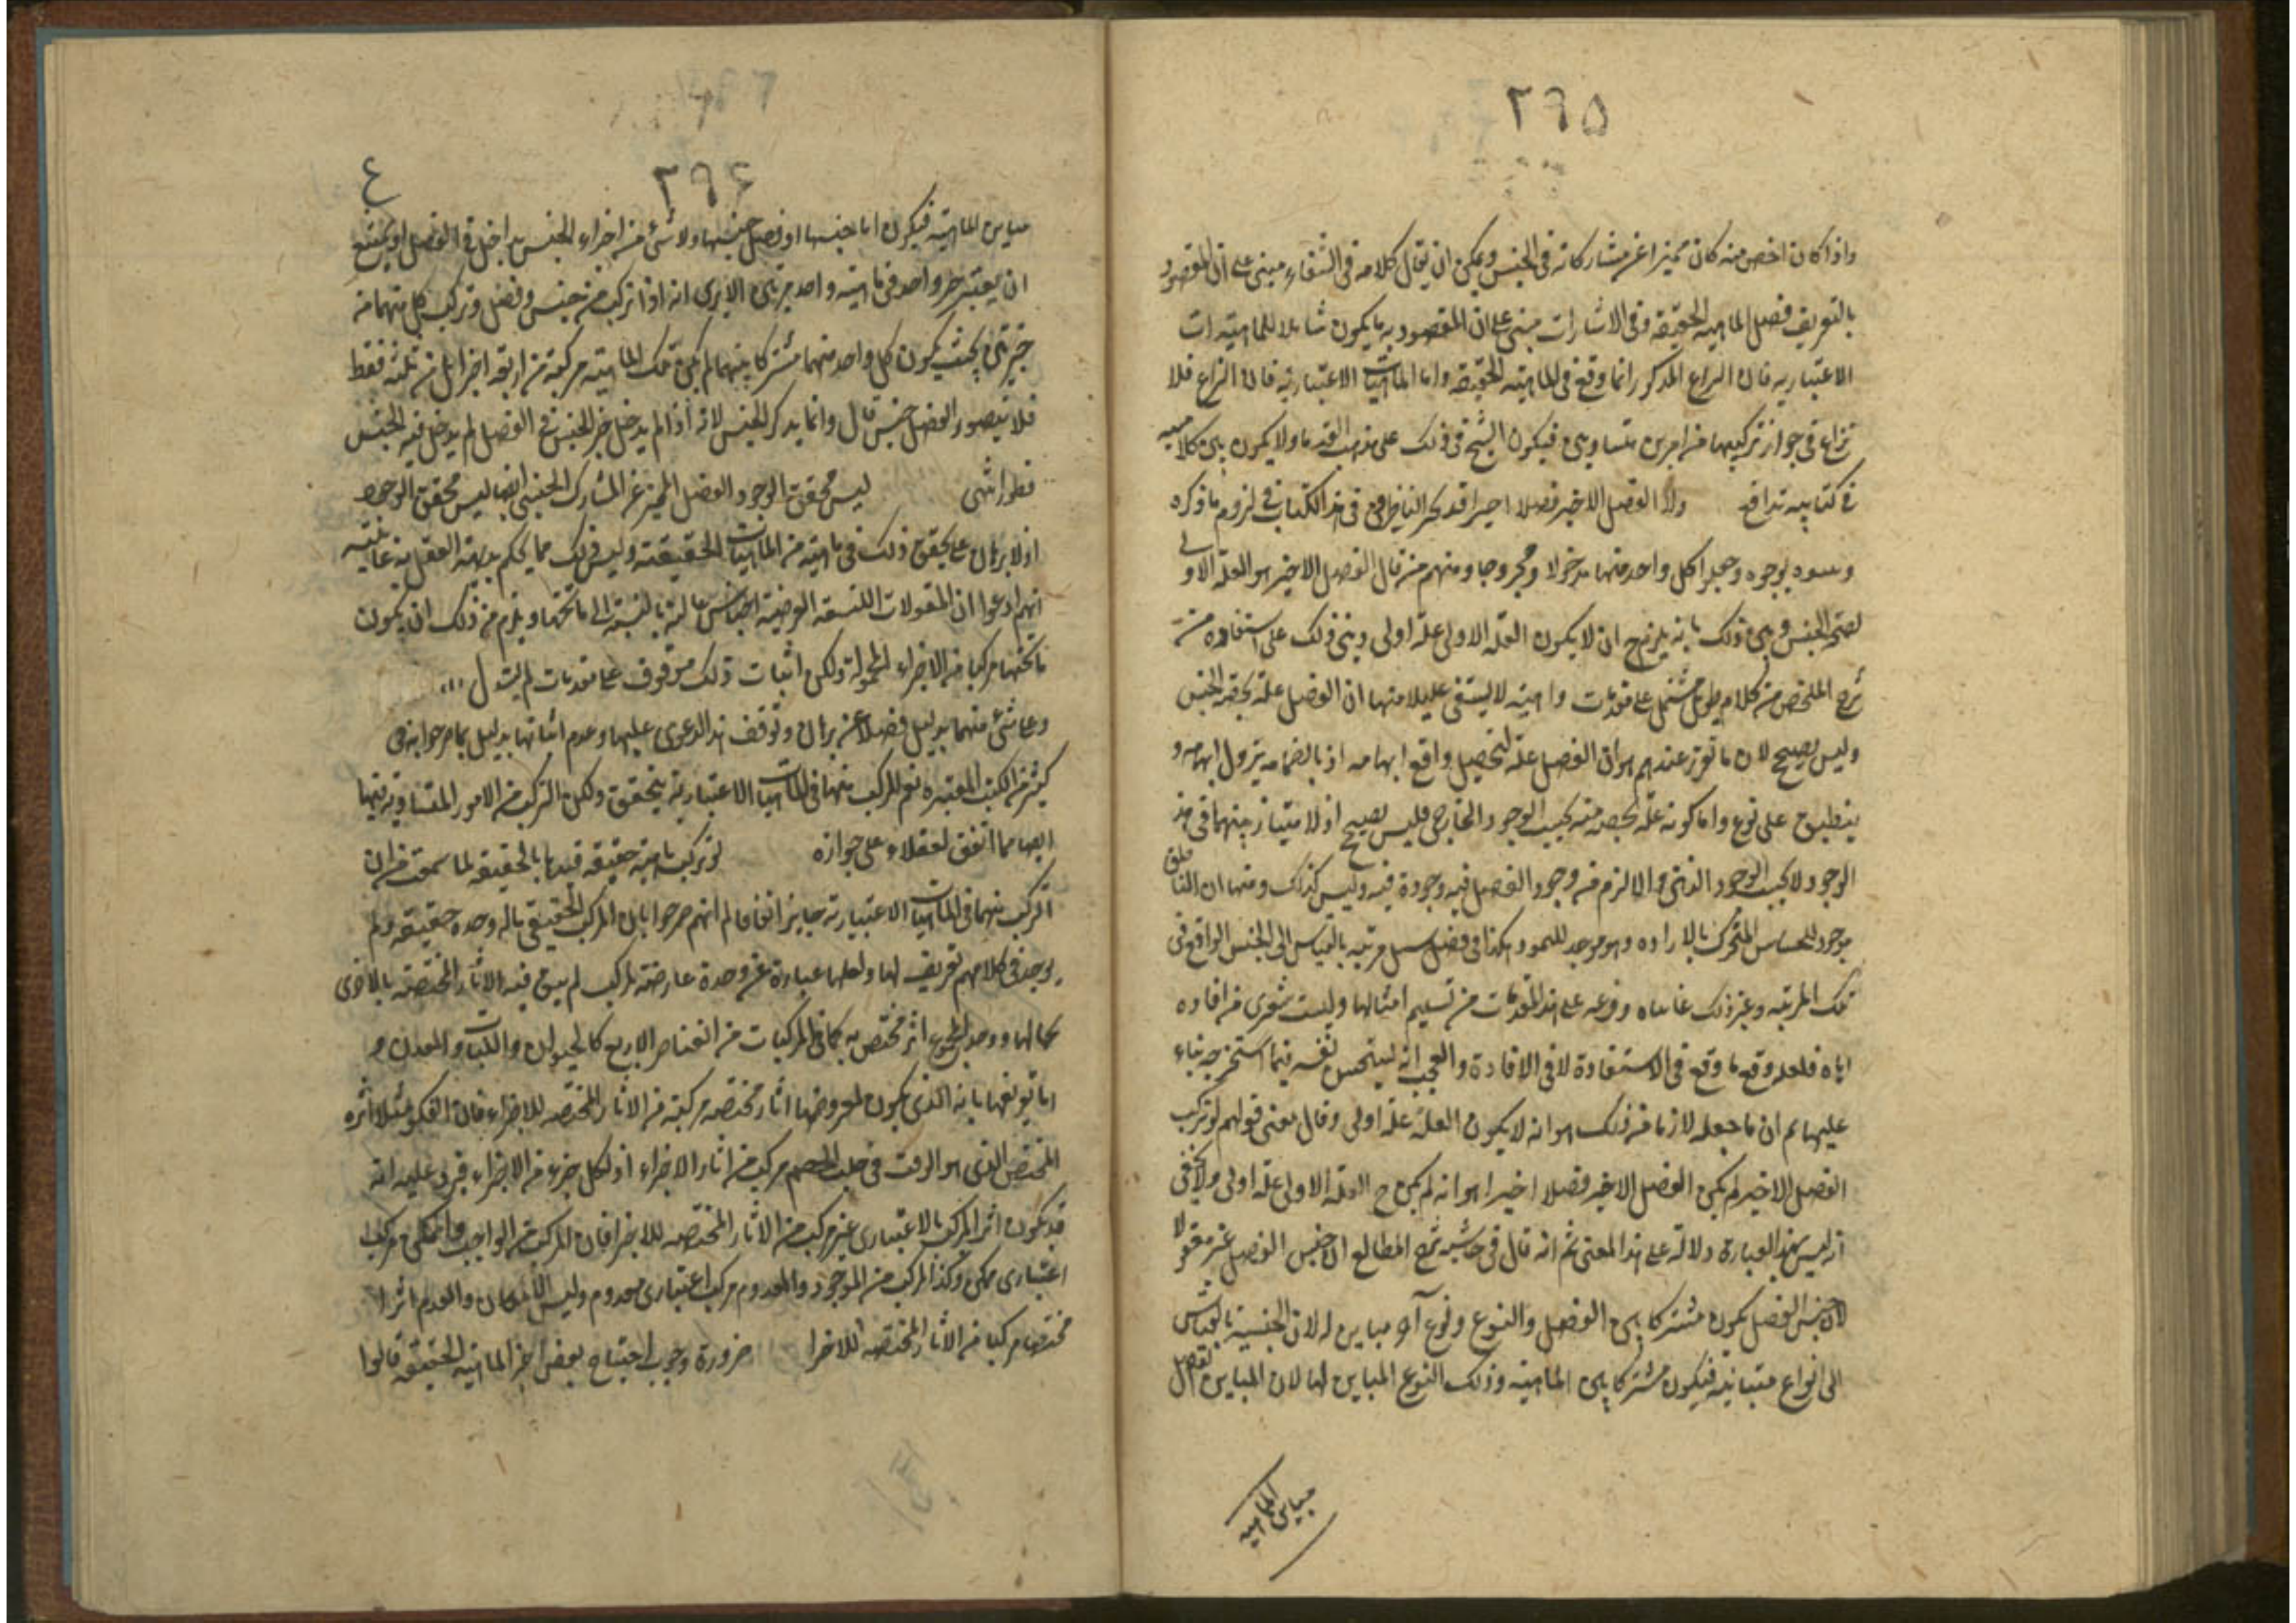 ٢٩٥
واذا كان اخص منه كان تميزا عن مشاركاته فى الجنس ويمكن ان يقال كلامه فى الشفاء مبنى على ان المقصود
بالتعريف فصل الماهية الحقيقة وفى الاشارات مبنى على ان المقصود به ما يكون شاملا للماهيات
الاعتباريه فان النزاع المذكور انما وقع فى الماهيته الحقيقه واما الماهيات الاعتباريه فان النزاع فلا
نزاع فى جواز تركيبها من امرين متساويين فيكون الشيخ فى ذلك على مذهب القدماء ولا يكون بين كلاميه
فى كتابيه تدافع الفصل الاخير فصلا اخيرا قد تحير الناظرون فى هذا الكتاب فى لزوم ما ذكره
بوجوه وجعلوا كل واحد منها مدخولا ومجروحا ومنهم من قال الفصل الاخير هو العلة الاولى
الجنس وبين ذلك بانه يلزم ح ان لا يكون العلة الاولى علة اولى وبنى ذلك على استفاده من
شرح الملخص من كلام طويل مشتمل على مقدمات واهيته لا يشفى عليلا منها ان الفصل علة بحصة الجنس
وليس بصحيح لان ما تقرر عندهم هو ان الفصل علة لتحصيل وافع ابهامه اذ بانضمامه يزول ابهامه و
ينطبق على نوع واما كونه علة بحصه منه بحسب الوجود الخارجى فليس بصحيح اذ لا امتياز بينهما فى هذا
الوجود لا بحسب الوجود الذهنى والا لزم من وجود الفصل فيه وجوده فيه وليس كذلك ومنها ان الناطق
موجود للحساس المتحرك بالاراده وهو موجد للنمو وهكذا فى فصل مرتبه بالقياس الى الجنس الواقع فى
تلك المرتبه وغير ذلك على هذه المقدمات من تسليم امثالها وليت شعرى من افاده
اياه فلعله وقع ما وقع فى الاستفادة لا فى الافادة والعجب انه ليستحسن نفسه فيما استخرجه بناء
عليها ثم ان ما جعله لازما من ذلك هو انه لا يكون العلة علة اولى وقال معنى قولهم لو تركب
الفصل الاخير لم يكن الفصل الاخير فصلا اخيرا هو انه لم يكن ح العلة الاولى علة اولى ولا يخفى
انه ليس بهذه العبارة دلالة على هذا المعنى ثم انه قال فى حاشيه شرح المطالع ان جنس الفصل غير معقول
لان جنس الفصل يكون مشتركا بين الفصل والنوع ونوع آخر مباين له لان الجنسية بالقياس
الى انواع متباينه فيكون مشتركا بين الماهيته وذلك النوع المباين لها لان المباين للفصل
مباين الماهيه
٢٩٦
٤
مباين الماهيته فيكون اما جنسها او فصل جنسها ولا شئ من اجزاء الجنس بداخل فى الفصل او يمتنع
ان يعتبر جزء واحد فى ماهيته واحد مرتين الا يرى انه اذا تركب من جنس وفصل وتركب كل منهما من
جزئين بحيث يكون كل واحد منهما مشتركا بينهما لم يكن تلك الماهيته مركبة من اربعة اجزا بل من ثلثه فقط
فلا يتصور لفصل جنس قال وانما يذكر الجنس لانه اذا لم يدخل جزء الجنس فى الفصل لم يدخل فيه الجنس
انتهى ليس محقق الوجود الفصل المميز عن المشارك الجنسى ايضا ليس محقق الوجود
اذ لا برهان على تحقق ذلك فى ماهيته من الماهيات الحقيقيته وليس ذلك مما يحكم بديهة العقل به
انهم ادعوا ان المقولات التسعه العرضية اجناس عالية بالنسبة الى ما تحتها ويلزم من ذلك ان يكون
ما تحتها مركبا من الاجزاء المحمولة ولكن اثبات ذلك موقوف على مقدمات لم
على شئ منهما بدليل فضلا عن برهان وتوقف هذا الدعوى عليها وعدم اثباتها بدليل مما صرحوا به فى
كثير من الكتب المعتبره نعم المركب منها فى الماهيات الاعتباريه يتحقق ولكن التركب من الامور المتساويه فيها
ايضا مما اتفق العقلاء على جوازه لو تركب ماهيته حقيقه قيدها بالحقيقه لما سمعت من ان
التركب منهما فى الماهيات الاعتباريه جايز اتفاقا ثم انهم صرحوا بان المركب الحقيقى ماله وحده حقيقه ولم
يوجد فى كلامهم تعريف لها ولعلها عبارة عن وحدة عارضه لمركب لم يبق فيه الاثار المختصه بالاجزاء
بحالها ووجد للمجموع اثر مختص به كما فى المركبات من العناصر الاربع كالحيوان والنبات والمعدن و
اما تعريفها بانه الذى يكون لمعروضها اثار مختصه مركبة من الاثار المختصه للاجزاء فان مثلا اثره
المختص الذى هو مركب من اثار الاجزاء اذ لكل جزء من الاجزاء فيرد عليه انه
قد يكون اثر المركب الاعتبارى غير مركب من الاثار المختصه للاجزا فان المركب من الواجب والممكن مركب
اعتبارى ممكن وكذا المركب من الموجود والمعدوم مركب اعتبارى معدوم وليس الامكان والعدم اثرا
مختصا مركبا من الاثار المختصه للاجزا ضرورة وجوب احتياج بعض اجزاء الماهيته الحقيقه قالوا